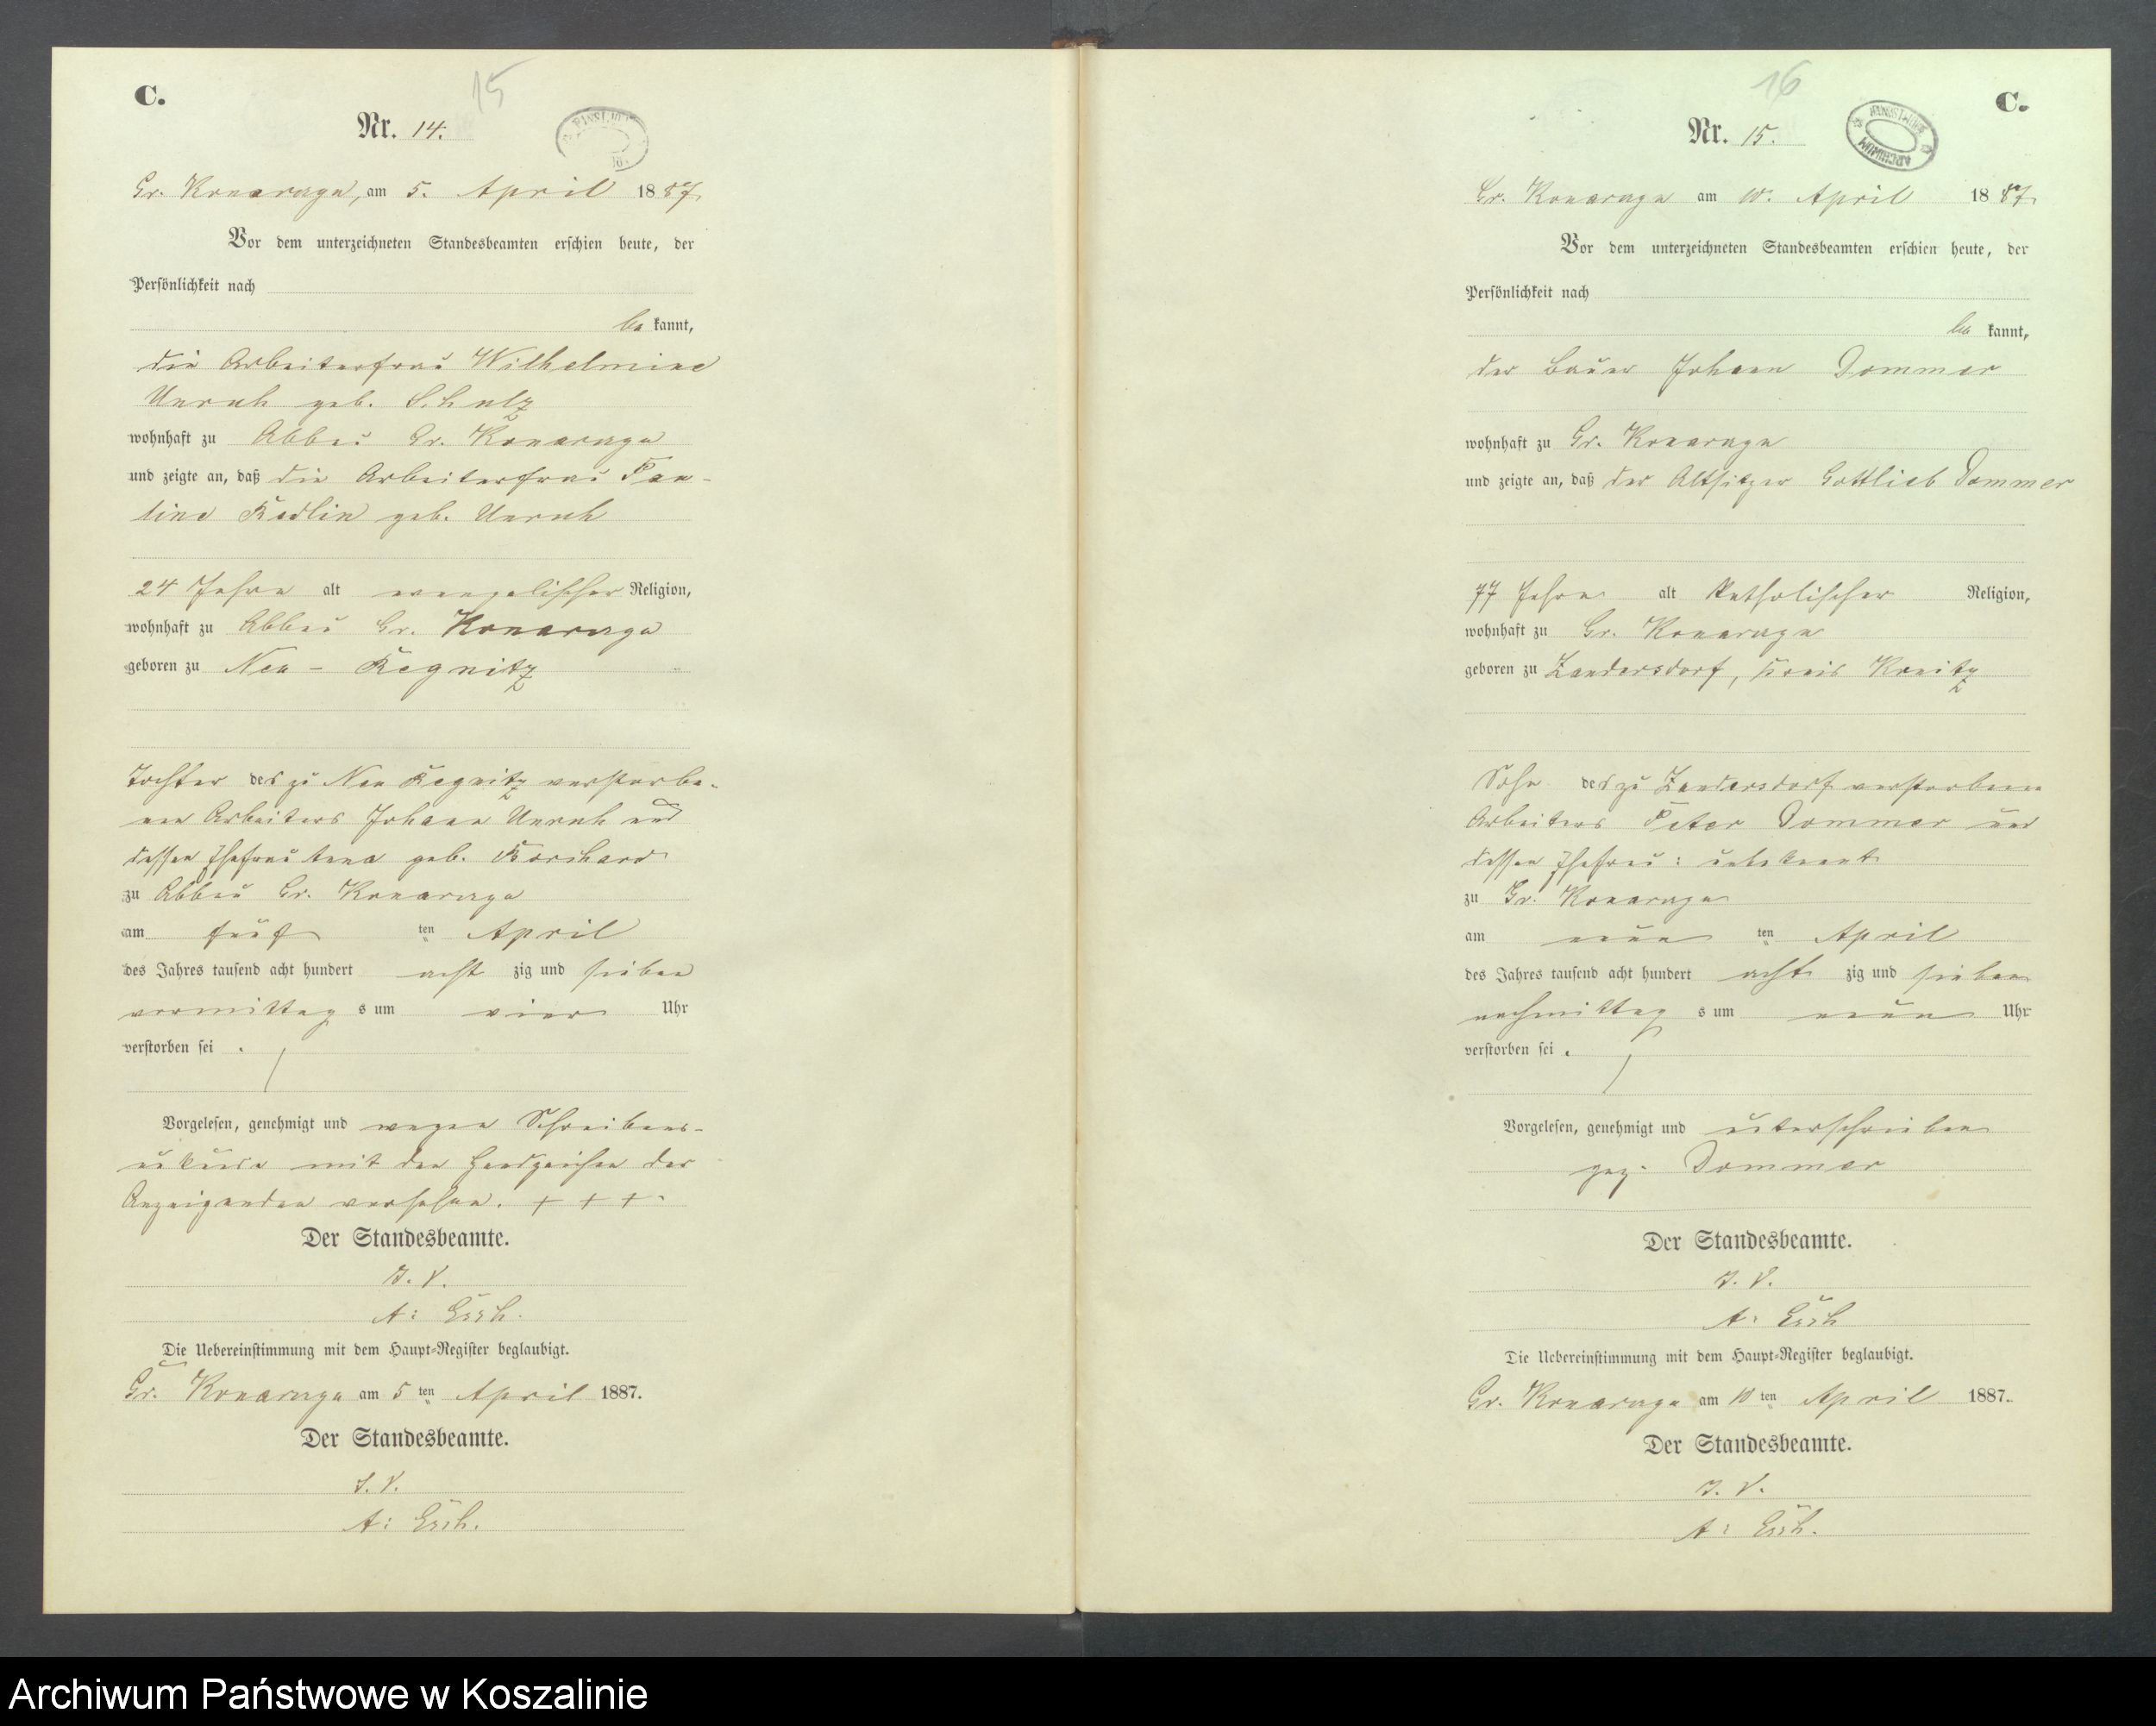 C.
15
Nr. 14.
Gr. Konarzyn, am 5. April 1887.
Vor dem unterzeichneten Standesbeamten erschien heute, der
Persönlichkeit nach
be kannt,
die Arbeiterfrau Wilhelmine
Unruh geb. Schulz
wohnhaft zu Abbau Gr. Konarzyn
und zeigte an, daß die Arbeiterfrau Pau-
line Redlin geb. Unruh
24 Jahre alt evangelischer Religion,
wohnhaft zu Abbau Gr. Konarzyn
geboren zu Neu-
Tochter des zu Neu verstorbe-
nen Arbeiters Johann Unruh und
dessen Ehefrau Anna geb.
zu Abbau Gr. Konarzyn
am fünf ten April
des Jahres tausend acht hundert acht zig und sieben
vormittag s um vier Uhr
verstorben sei.
Vorgelesen, genehmigt und wegen Schreibens-
unkunde mit den Handzeichen der
Anzeigenden versehen. + + +.
Der Standesbeamte.
J. V.
A:
Die Uebereinstimmung mit dem Haupt-Register beglaubigt.
Gr. Konarzyn am 5 ten April 1887.
Der Standesbeamte.
J. V.
A:
16
C.
Nr. 15.
ARCHIWUM
Gr. Konarzyn am 10. April 1887.
Vor dem unterzeichneten Standesbeamten erschien heute, der
Persönlichkeit nach
be kannt,
der Bauer Johann Dommer
wohnhaft zu Gr. Konarzyn
und zeigte an, daß der Altsitzer Gottlieb Dommer
77 Jahre alt katholischer Religion,
wohnhaft zu Gr. Konarzyn
geboren zu Zandersdorf, Kreis Konitz
Sohn des zu Zandersdorf verstorbenen
Arbeiters Peter Dommer und
dessen Ehefrau: unbekannt
zu Gr. Konarzyn
am neun ten April
des Jahres tausend acht hundert acht zig und sieben
nachmittag s um neun Uhr
verstorben sei.
Vorgelesen, genehmigt und unterschrieben
gez. Dommer
Der Standesbeamte.
J. V.
A:
Die Uebereinstimmung mit dem Haupt-Register beglaubigt.
Gr. Konarzyn am 10 ten April 1887.
Der Standesbeamte.
J. V.
A:
Archiwum Państwowe w Koszalinie